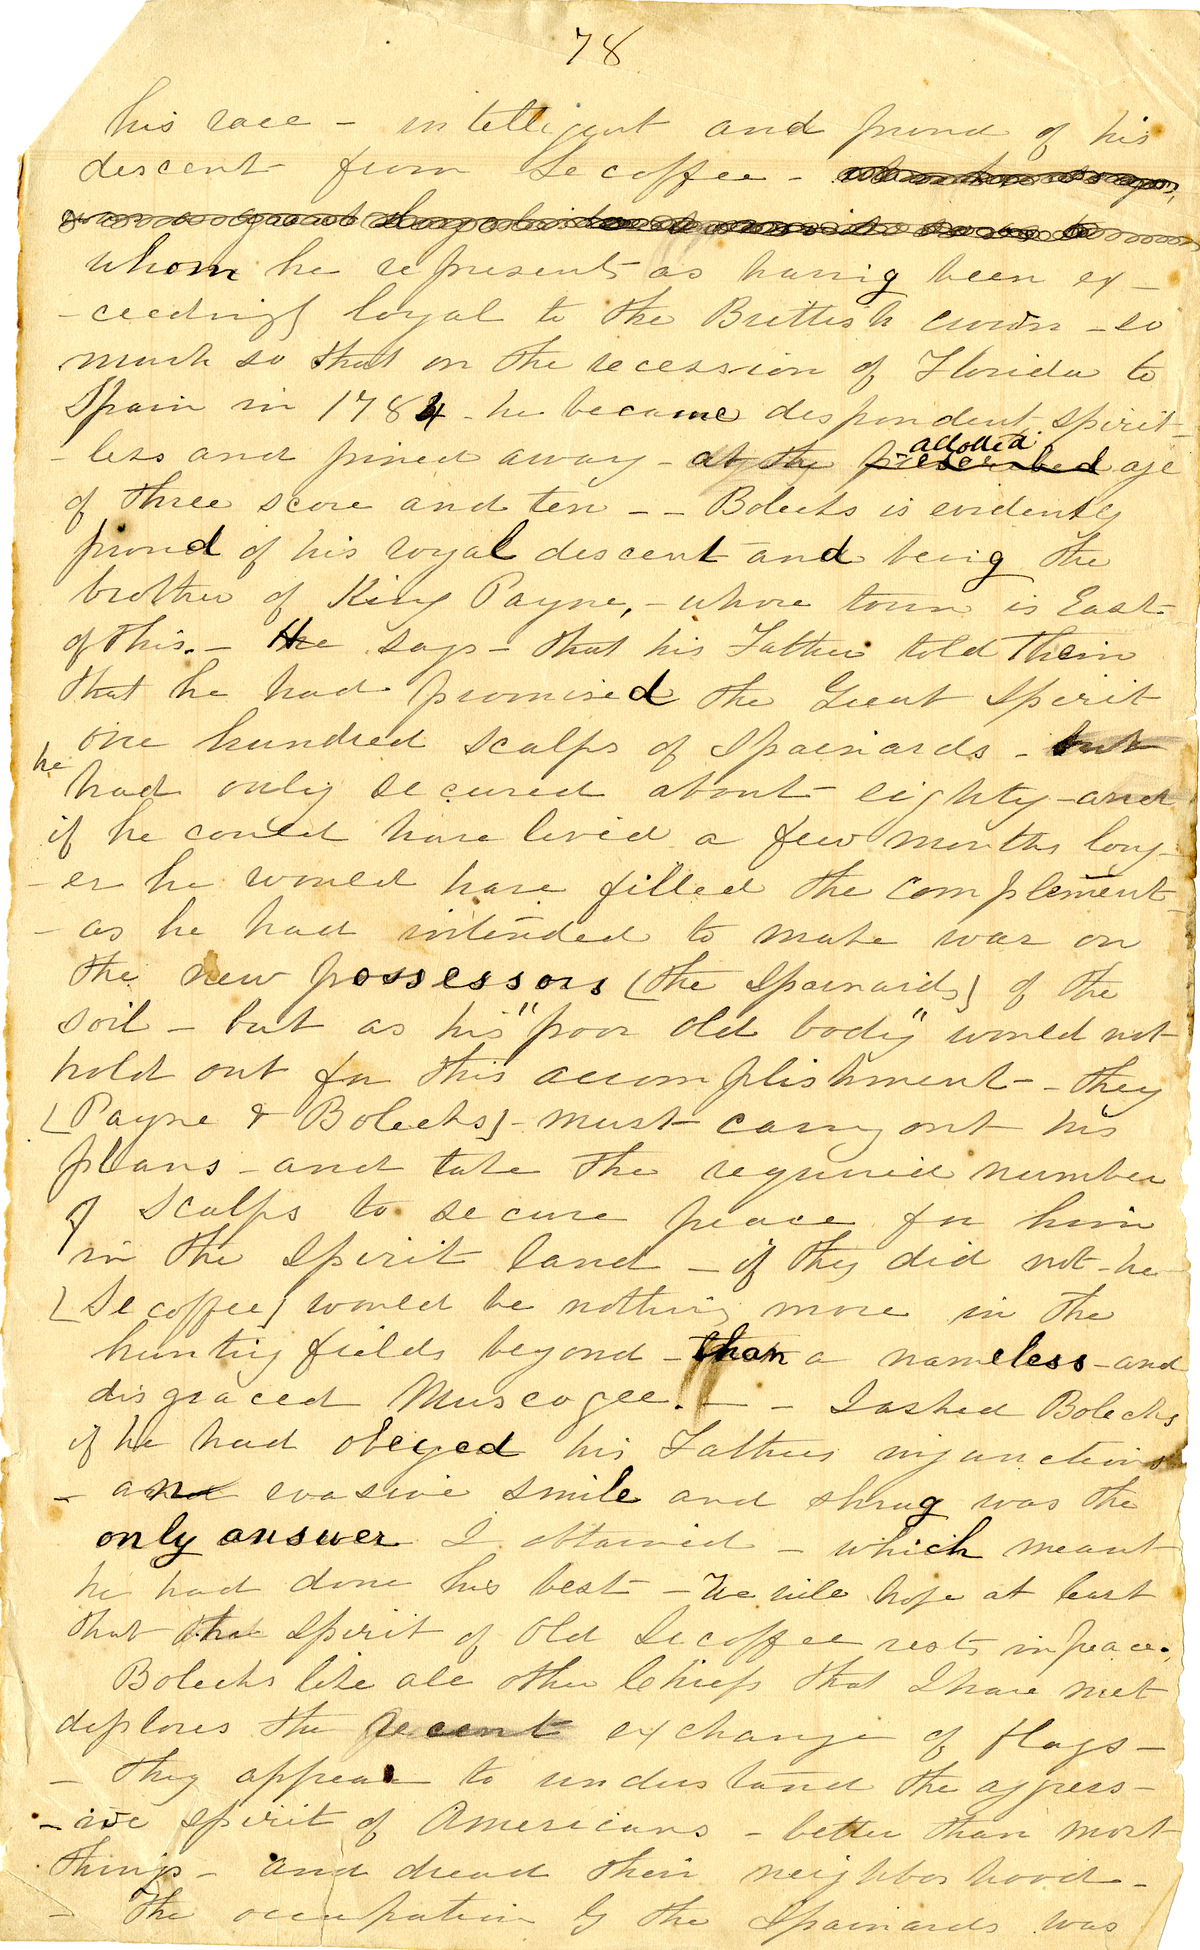 78
his race - intelligent and proud of his
descent from Secoffee -
whom he represents as having been ex -
- ceedingly loyal to the Brittish crown - so
much so that on the recession of Florida to
Spain in 1784 - he became despondent spirit -
- less and pined away - at the prescribed allotted age
of three score and ten - - Bolecks is evidently
proud of his royal descent and being the
brother of King Payne, - whose town is East
of this. - He says - that his Father told them
that he had promised the Great Spirit
one hundred scalps of Spainards - but
he had only secured about eighty - and
if he could have lived a few months long -
- er he would have filled the complement -
- as he had intended to make war on
the new possessors [the Spainards] of the
soil - but as his "poor old body" would not
hold out for this accomplishment - - they
[Payne & Bolecks] - must carry out his
plans - and take the required number
of scalps to secure peace for him
in the Spirit land - if they did not - he
[Secoffee] would be nothing more in the
hunting fields beyond - than a nameless - and
disgraced Muscogee. - - I asked Bolecks
if he had obeyed his Fathers injunctions
- and evasive smile and shrug was the
only answer I obtained - which meant
he had done his best - We will hope at least
that the Spirit of Old Secoffee rests in peace.
Bolecks like all other Chiefs that I have met
deplores the recent exchange of flags -
- they appear to understand the agress -
- ive spirit of Americans - better than most
things - and dread their neighborhood -
- The occupation by the Spainards was